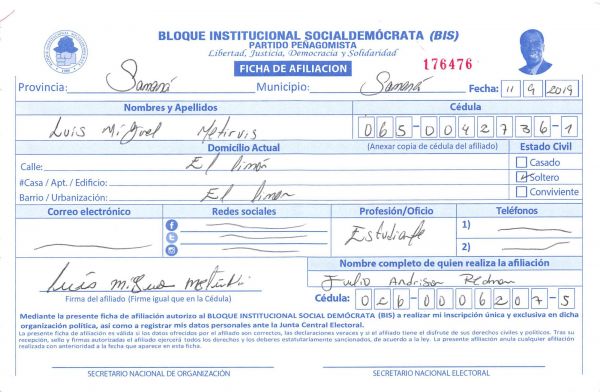 BLOQUE INSTITUCIONAL SOCIALDEMÓCRATA (BIS)
PARTIDO PEÑAGOMISTA
Libertad, Justicia, Democracia y Solidaridad
FICHA DE AFILIACION
176476
Provincia: Samaná Municipio: Samaná Fecha: 11 9 2019
Nombres y Apellidos Cédula
Luis Miguel 065-0042736-1
Domicilio Actual (Anexar copia de cédula del afiliado) Estado Civil
Calle: El Limón Casado
#Casa / Apt. / Edificio: Soltero
Barrio / Urbanización: El Limon Conviviente
Correo electrónico Redes sociales Profesión/Oficio Teléfonos
Estudiante 1)
2)
Luis Miguel
Firma del afiliado (Firme igual que en la Cédula)
Nombre completo de quien realiza la afiliación
Julio Andrison Redman
Cédula: 026-0006207-5
Mediante la presente ficha de afiliación autorizo al BLOQUE INSTITUCIONAL SOCIAL DEMÓCRATA (BIS) a realizar mi inscripción única y exclusiva en dicha
organización política, así como a registrar mis datos personales ante la Junta Central Electoral.
La presente ficha de afiliación es válida si los datos ofrecidos por el afiliado son correctos, las declaraciones veraces y si el afiliado tiene el disfrute de sus derechos civiles y políticos. Tras su
recepción, sello y firmas autorizadas el afiliado ejercerá todos los derechos y los deberes estatutariamente sancionados, de acuerdo a la ley. La presente afiliación anula cualquier afiliación
realizada con anterioridad a la fecha que aparece en esta ficha.
SECRETARIO NACIONAL DE ORGANIZACIÓN SECRETARIO NACIONAL ELECTORAL